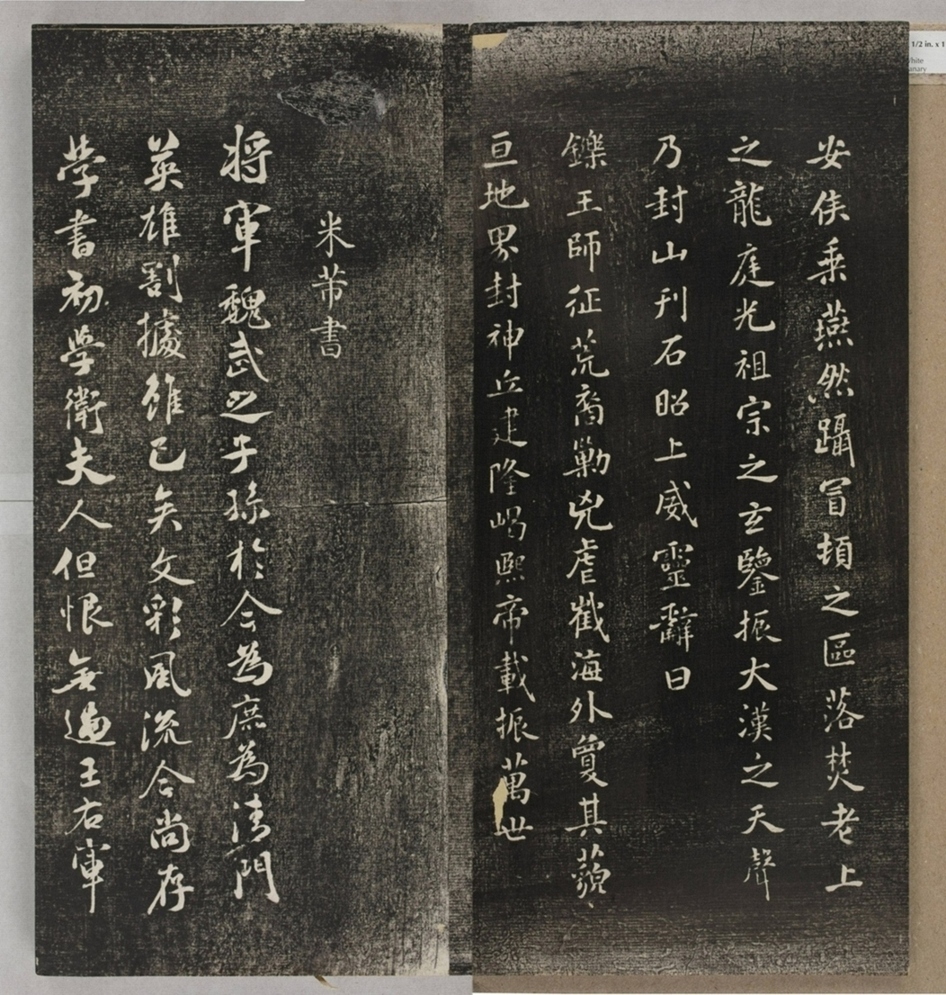 安侯乘燕然躡冒頓之區落焚老上
之龍庭光祖宗之玄鑒振大漢之天聲
乃封山刊石昭上威靈辭曰
鑠王師征荒裔勦兇虐截海外敻其藐
亘地界封神丘建隆嵑熙帝載振萬世
米芾書
将軍魏武之子孫於今為庶為清門
英雄割據雖已矣文彩風流今尚存
學書初学衛夫人但恨無過王右軍
1/2 in. x 1